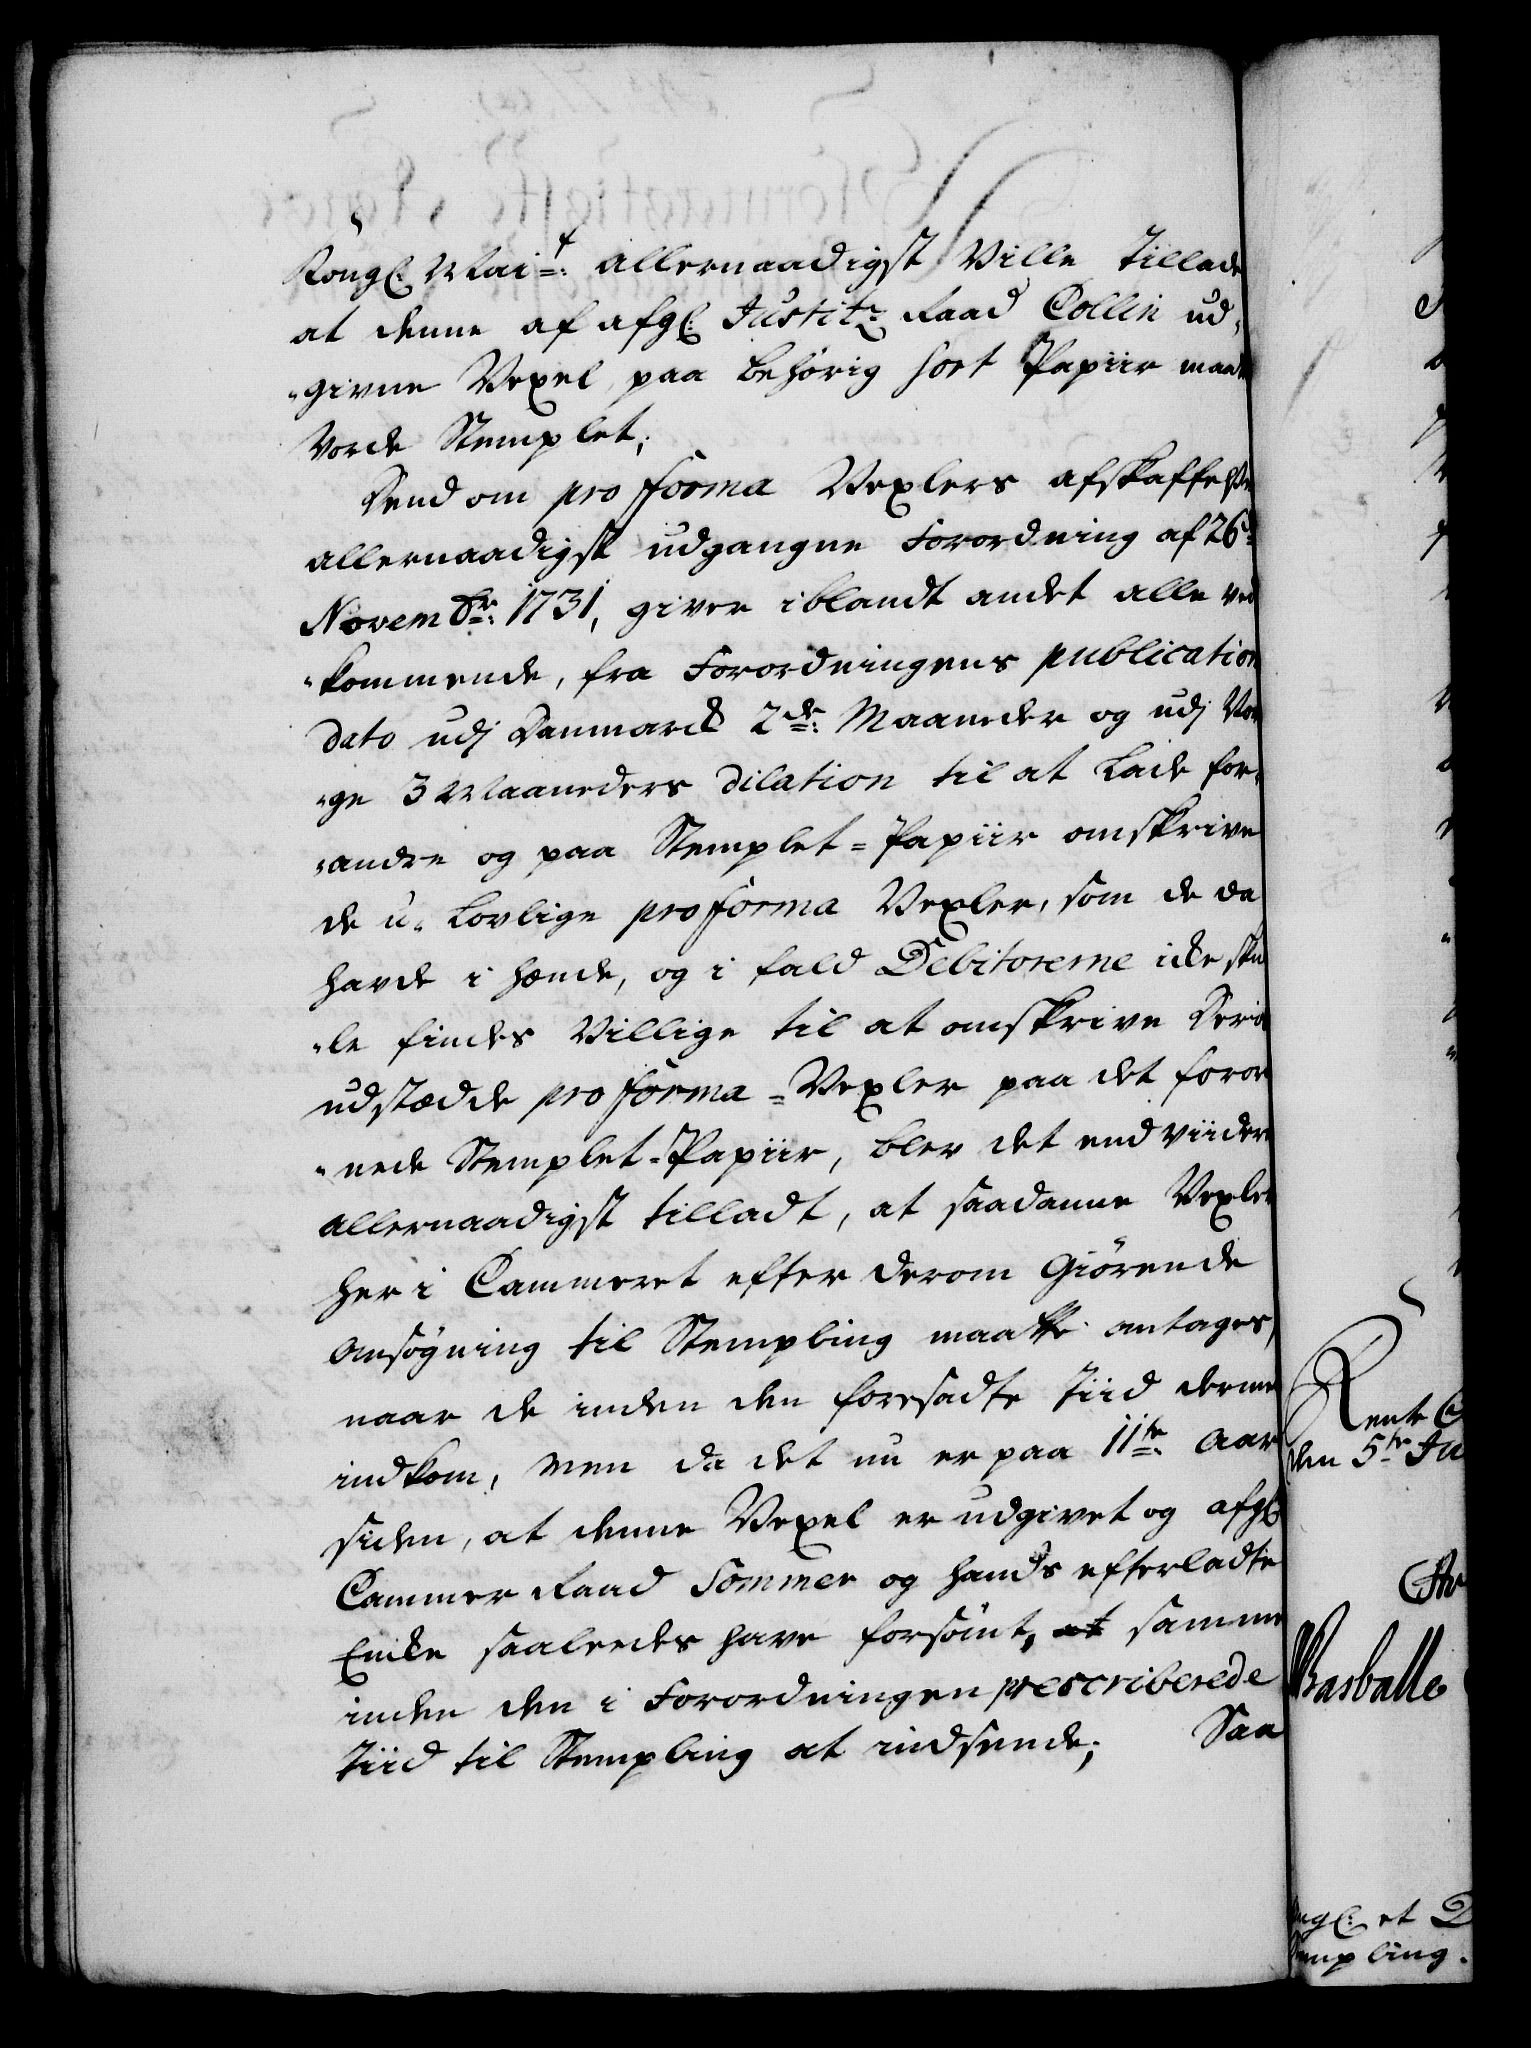 Kongl: Mai:t allernaadigst Ville Tillade
at denne af afgl: Justitz Raad Collin ud,
„givne Vexel, paa behörig sort Papiir maatte
Vorde Stemplet;
Dend om pro forma Vexlers afskaffelse
allernaadigst udgangne Forordning af 26:
Novembr: 1731, giver iblandt andet alle ved
„kommende, fra Forordningens publication
dato udj Danmarck 2de: Maaneder og udj Nor
„ge 3 Maaneders dilation til at lade for,
„andre og paa Stemplet=Papiir omskrive
de u, lovlige pro forma Vexler, som de da
havde i hænde, og i fald Debitorerne icke skul
„le findes Villige til at omskrive deris
udstædde pro forma=Vexler paa det foror
„nede Stemplet=Papiir, blev det end viidere
allernaadigst tilladt, at saadanne Vexler
her i Cammeret efter derom giörende
Ansögning til Stempling maatte antages,
naar de inden den foresadte Tiid dermed
indkom, Men da det nu er paa 11te: Aar
siden, at denne Vexel er udgivet og afgl:
Cammer Raad Sommer og hands efterladte
Encke saaledes have forsömt, at samme
inden den i Forordningen prescriberede
Tiid til Stempling at indsende; Saa
Rente C
den 5te Ju
Basballe
ngl: et D
empling.